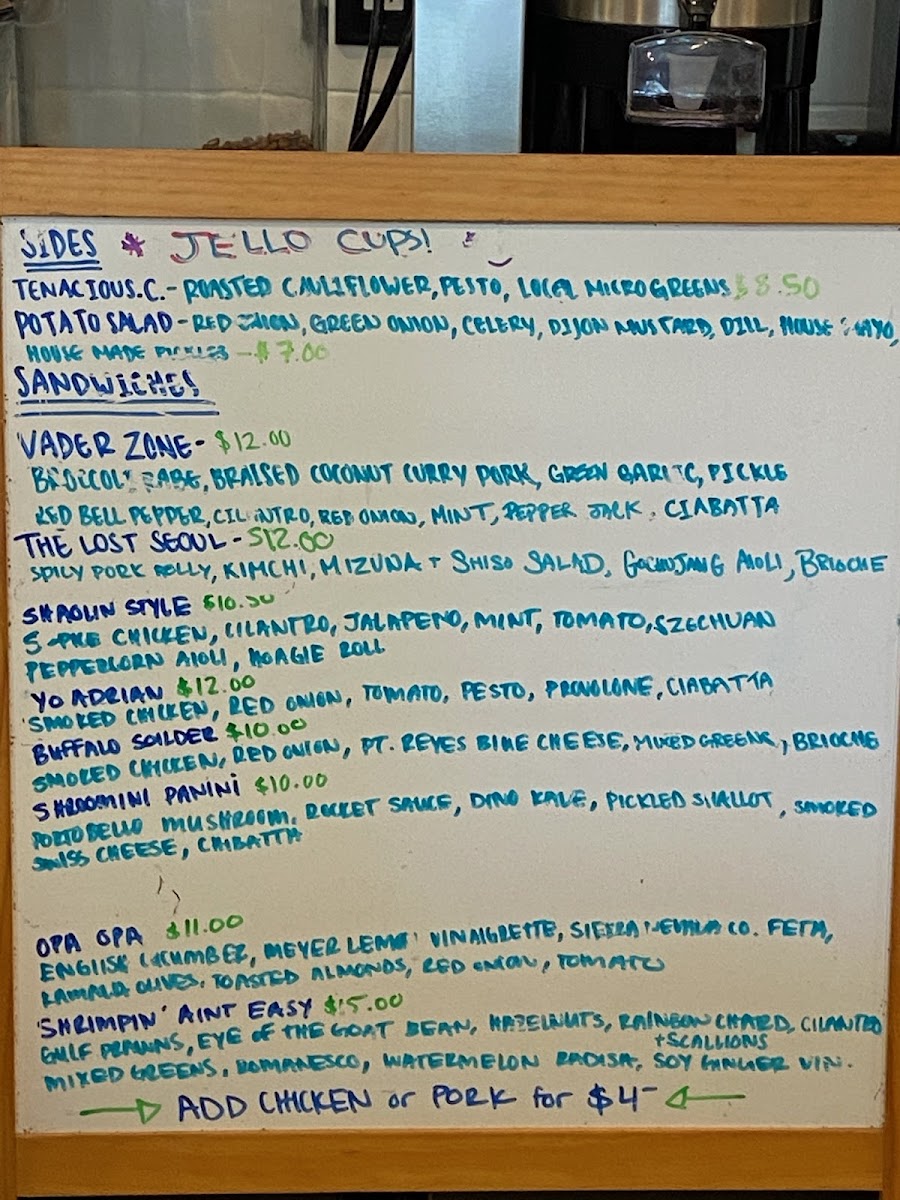 SIDES * JELLO CUPS! *
TENACIOUS.C.- ROASTED CAULIFLOWER, PESTO, LOCAL MICROGREENS $8.50
POTATO SALAD - RED ONION, GREEN ONION, CELERY, DIJON MUSTARD, DILL, HOUSE MAYO,
HOUSE MADE PICKLES - $7.00
SANDWICHES
VADER ZONE- $12.00
BROCCOLI RABE, BRAISED COCONUT CURRY PORK, GREEN GARLIC, PICKLE
RED BELL PEPPER, CILANTRO, RED ONION, MINT, PEPPER JACK, CIABATTA
THE LOST SEOUL - $12.00
SPICY PORK BELLY, KIMCHI, MIZUNA + SHISO SALAD, GOCHUJANG AIOLI, BRIOCHE
SHAOLIN STYLE $10.50
CHICKEN, CILANTRO, JALAPENO, MINT, TOMATO, SZECHUAN
PEPPERCORN AIOLI, HOAGIE ROLL
YO ADRIAN $12.00
SMOKED CHICKEN, RED ONION, TOMATO, PESTO, PROVOLONE, CIABATTA
BUFFALO SOILDER $10.00
SMOKED CHICKEN, RED ONION, PT. REYES BLUE CHEESE, MIXED GREENS, BRIOCHE
SHROOMINI PANINI $10.00
PORTOBELLO MUSHROOM, ROCKET SAUCE, DINO KALE, PICKLED SHALLOT, SMOKED
SWISS CHEESE, CIABATTA
OPA OPA $11.00
ENGLISH CUCUMBER, MEYER LEMON VINAIGRETTE, SIERRA NEVADA CO. FETA,
KAMALA OLIVES, TOASTED ALMONDS, RED ONION, TOMATO
'SHRIMPIN' AINT EASY $15.00
GULF PRAWNS, EYE OF THE GOAT BEAN, HAZELNUTS, RAINBOW CHARD, CILANTRO
+ SCALLIONS
MIXED GREENS, ROMANESCO, WATERMELON RADISH, SOY GINGER VIN.
ADD CHICKEN or PORK for $4-